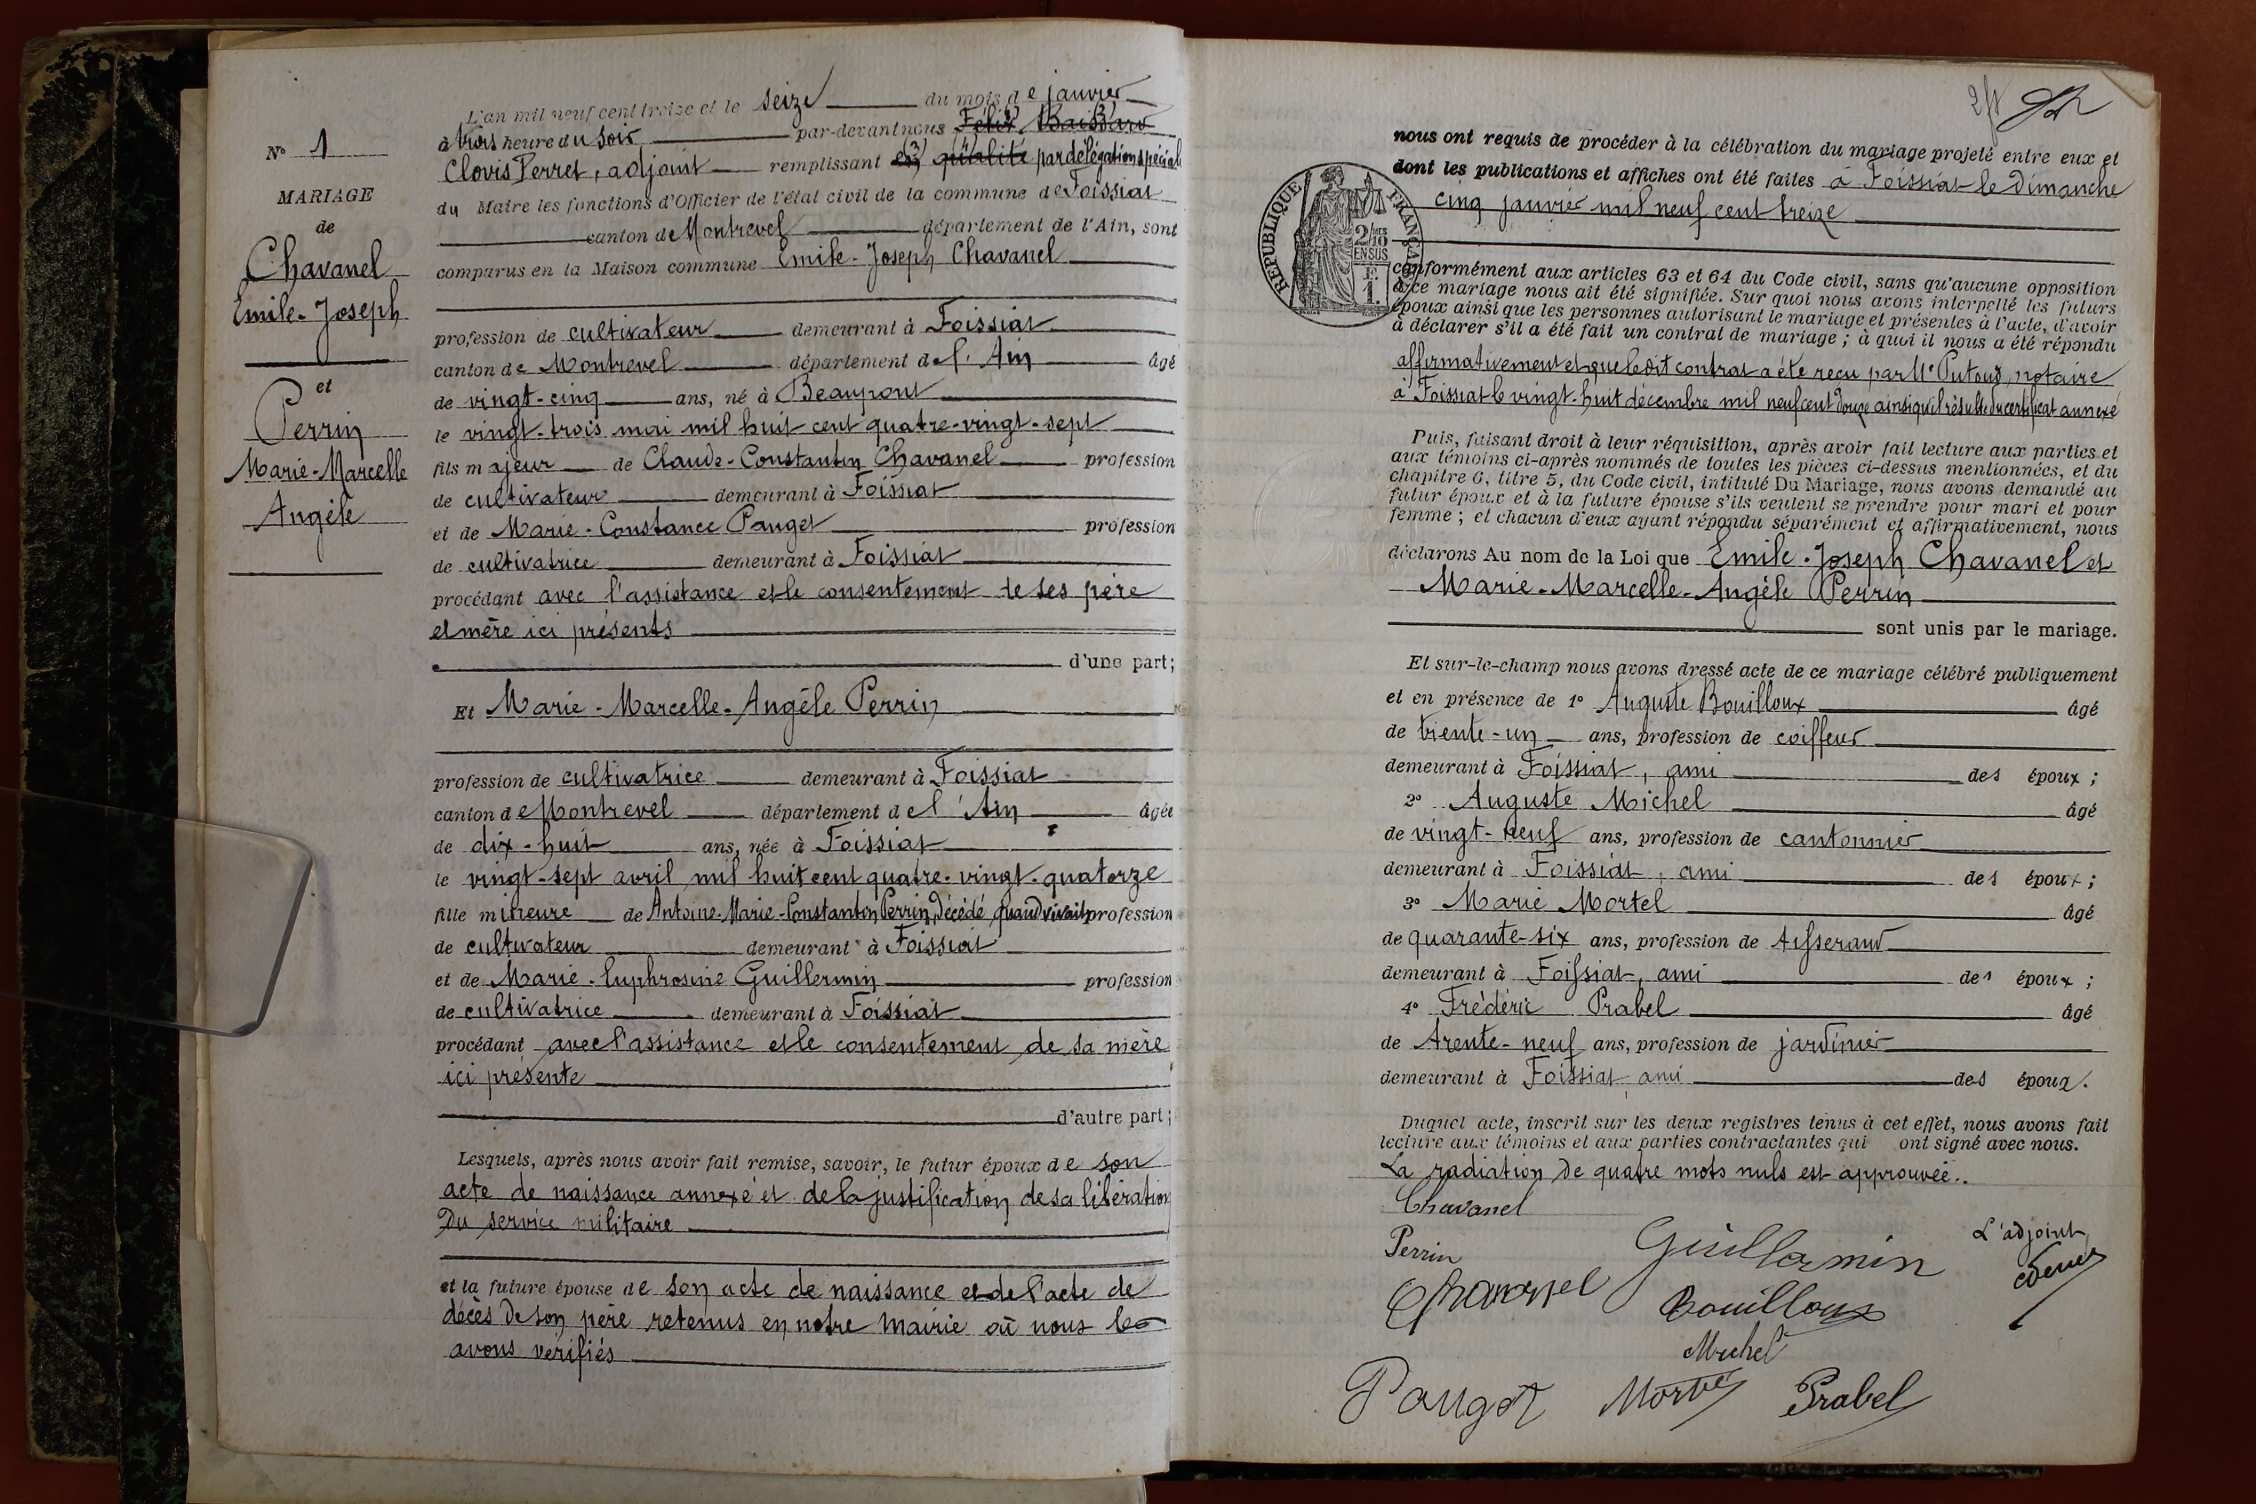 N° 1
MARIAGE
de
Chavanel
Emile-Joseph
et
Perrin
Marie-Marcelle
Angèle
L'an mil neuf cent treize et le seize du mois de janvier
à trois heure du soir par-devant nous Félix Baissard
Clovis Perret, adjoint remplissant en qualité par délégation spéciale
du Maire les fonctions d'Officier de l'état civil de la commune de Foissiat
canton de Montrevel département de l'Ain, sont
comparus en la Maison commune Emile-Joseph Chavanel
profession de cultivateur demeurant à Foissiat
canton de Montrevel département de l'Ain âgé
de vingt-cinq ans, né à Beaupont
le vingt-trois mai mil huit cent quatre-vingt-sept
fils majeur de Claude-Constantin Chavanel profession
de cultivateur demeurant à Foissiat
et de Marie-Constance Pauget profession
de cultivatrice demeurant à Foissiat
procédant avec l'assistance et le consentement de ses père
et mère ici présents
d'une part;
Et Marie-Marcelle-Angèle Perrin
profession de cultivatrice demeurant à Foissiat
canton de Montrevel département de l'Ain âgée
de dix-huit ans, née à Foissiat
le vingt-sept avril mil huit cent quatre-vingt-quatorze
fille mineure de Antoine-Marie-Constantin Perrin, décédé quand vivait profession
de cultivateur demeurant à Foissiat
et de Marie-Euphrosine Guillermin profession
de cultivatrice demeurant à Foissiat
procédant avec l'assistance et le consentement de sa mère
ici présente
d'autre part;
Lesquels, après nous avoir fait remise, savoir, le futur époux de son
acte de naissance annexé et de la justification de sa libération
du service militaire
et la future épouse de son acte de naissance et de l'acte de
décès de son père retenus en notre mairie où nous les
avons vérifiés
nous ont requis de procéder à la célébration du mariage projeté entre eux et
dont les publications et affiches ont été faites à Foissiat le dimanche
cinq janvier mil neuf cent treize
RÉPUBLIQUE FRANÇAISE
2/10
EN SUS
1 F.
conformément aux articles 63 et 64 du Code civil, sans qu'aucune opposition
à ce mariage nous ait été signifiée. Sur quoi nous avons interpellé les futurs
époux ainsi que les personnes autorisant le mariage et présentes à l'acte, d'avoir
à déclarer s'il a été fait un contrat de mariage; à quoi il nous a été répondu
affirmativement et que ledit contrat a été reçu par Me Putoud, notaire
à Foissiat le vingt-huit décembre mil neuf cent douze ainsi qu'il résulte du certificat annexé
Puis, faisant droit à leur réquisition, après avoir fait lecture aux parties et
aux témoins ci-après nommés de toutes les pièces ci-dessus mentionnées, et du
chapitre 6, titre 5, du Code civil, intitulé Du Mariage, nous avons demandé au
futur époux et à la future épouse s'ils veulent se prendre pour mari et pour
femme; et chacun d'eux ayant répondu séparément et affirmativement, nous
déclarons Au nom de la Loi que Emile-Joseph Chavanel et
Marie-Marcelle-Angèle Perrin
sont unis par le mariage.
Et sur-le-champ nous avons dressé acte de ce mariage célébré publiquement
et en présence de 1° Auguste Bouilloux âgé
de trente-un ans, profession de coiffeur
demeurant à Foissiat, ami des époux;
2° Auguste Michel âgé
de vingt-neuf ans, profession de cantonnier
demeurant à Foissiat, ami des époux;
3° Marie Mortel âgé
de quarante-six ans, profession de tisserand
demeurant à Foissiat, ami des époux;
4° Frédéric Prabel âgé
de trente-neuf ans, profession de jardinier
demeurant à Foissiat ami des époux.
Duquel acte, inscrit sur les deux registres tenus à cet effet, nous avons fait
lecture aux témoins et aux parties contractantes qui ont signé avec nous.
La radiation de quatre mots nuls est approuvée..
Chavanel
Perrin Guillermin L'adjoint
Chavanel Bouilloux Perret
Michel
Pauget Mortel Prabel